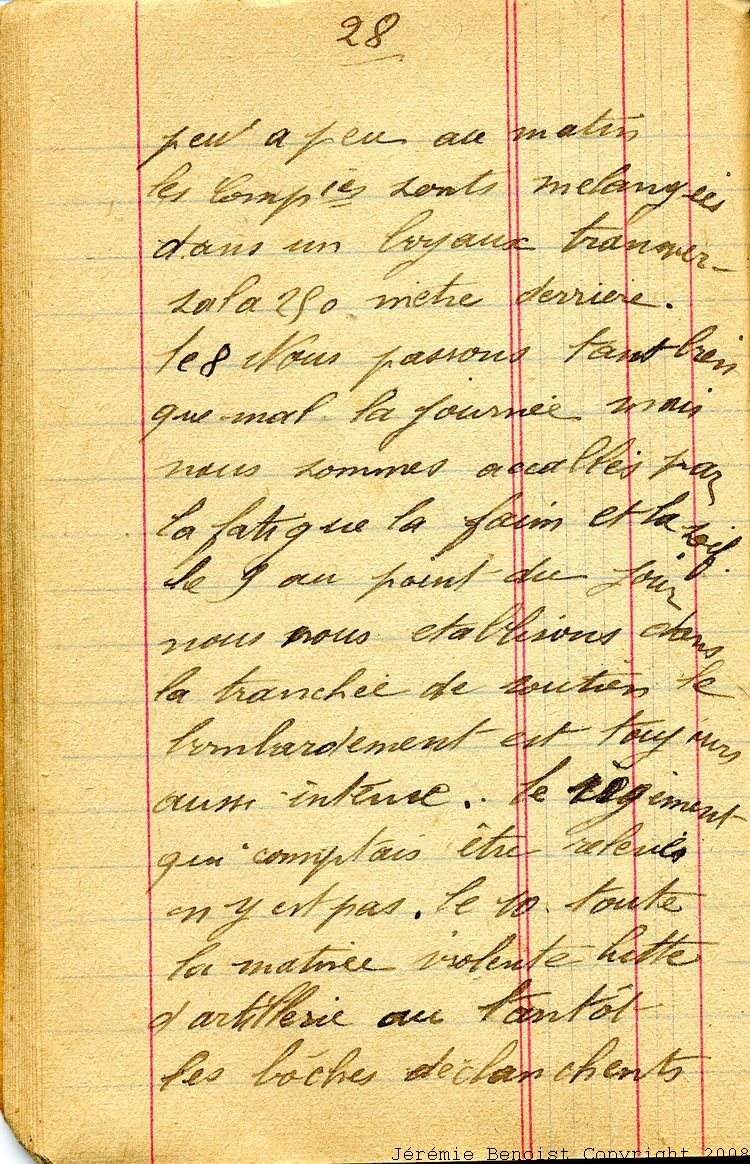 28
peu a peu au matin
les Compies sonts melangées
dans un boyaux tranver-
sala 250 metre derriere.
le 8 Nous passons tant bien
que mal la journée mais
nous sommes accablés par
la fatigue la faim et la soif.
le 9 au point du jour
nous nous etablisons dans
la tranchée de soutien le
bombardement est toujours
aussi intense.. le régiment
qui comptais être relevés
n y est pas. le 10. toute
la matinée violente lutte
d'artillerie au tantôt
les bôches déclanchents
Jérémie Benoist Copyright 2008